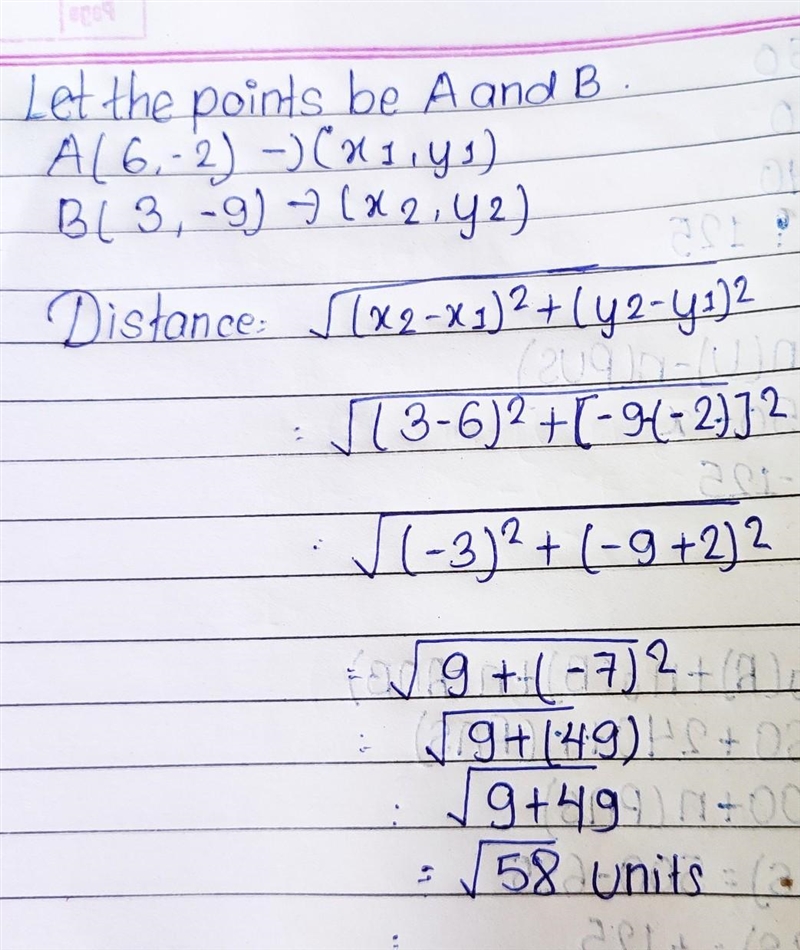 Page
Let the points be A and B.
A(6,-2) → (x1,y1)
B(3,-9) → (x2,y2)
Distance: √(x2-x1)²+(y2-y1)²
: √(3-6)²+[-9-(-2)]²
: √(-3)²+(-9+2)²
= √9+(-7)²
: √9+(49)
: √9+49
= √58 units
: